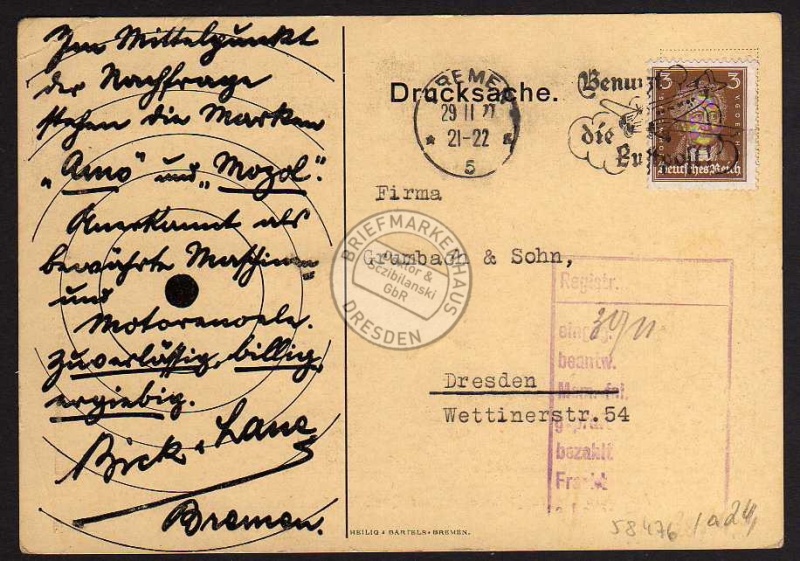 Im Mittelpunkt
der Nachfrage
stehen die Marken
„Amo“ und „Mozol“.
Anerkannt als
bewährte Maschinen
und
Motorenoele.
Zuverlässig, billig,
ergiebig.
Bremen.
Drucksache.
BREMEN
29 11 27
21-22
5
Benutzt
die
Luftpost
3 3
Deutsches Reich
Firma
Grumbach & Sohn,
Dresden
Wettinerstr. 54
BRIEFMARKENHAUS
Sczibilanski
GbR
DRESDEN
Registr.
eingeg.
beantw.
geprüft
bezahlt
HEILIG & BARTELS • BREMEN.
58476